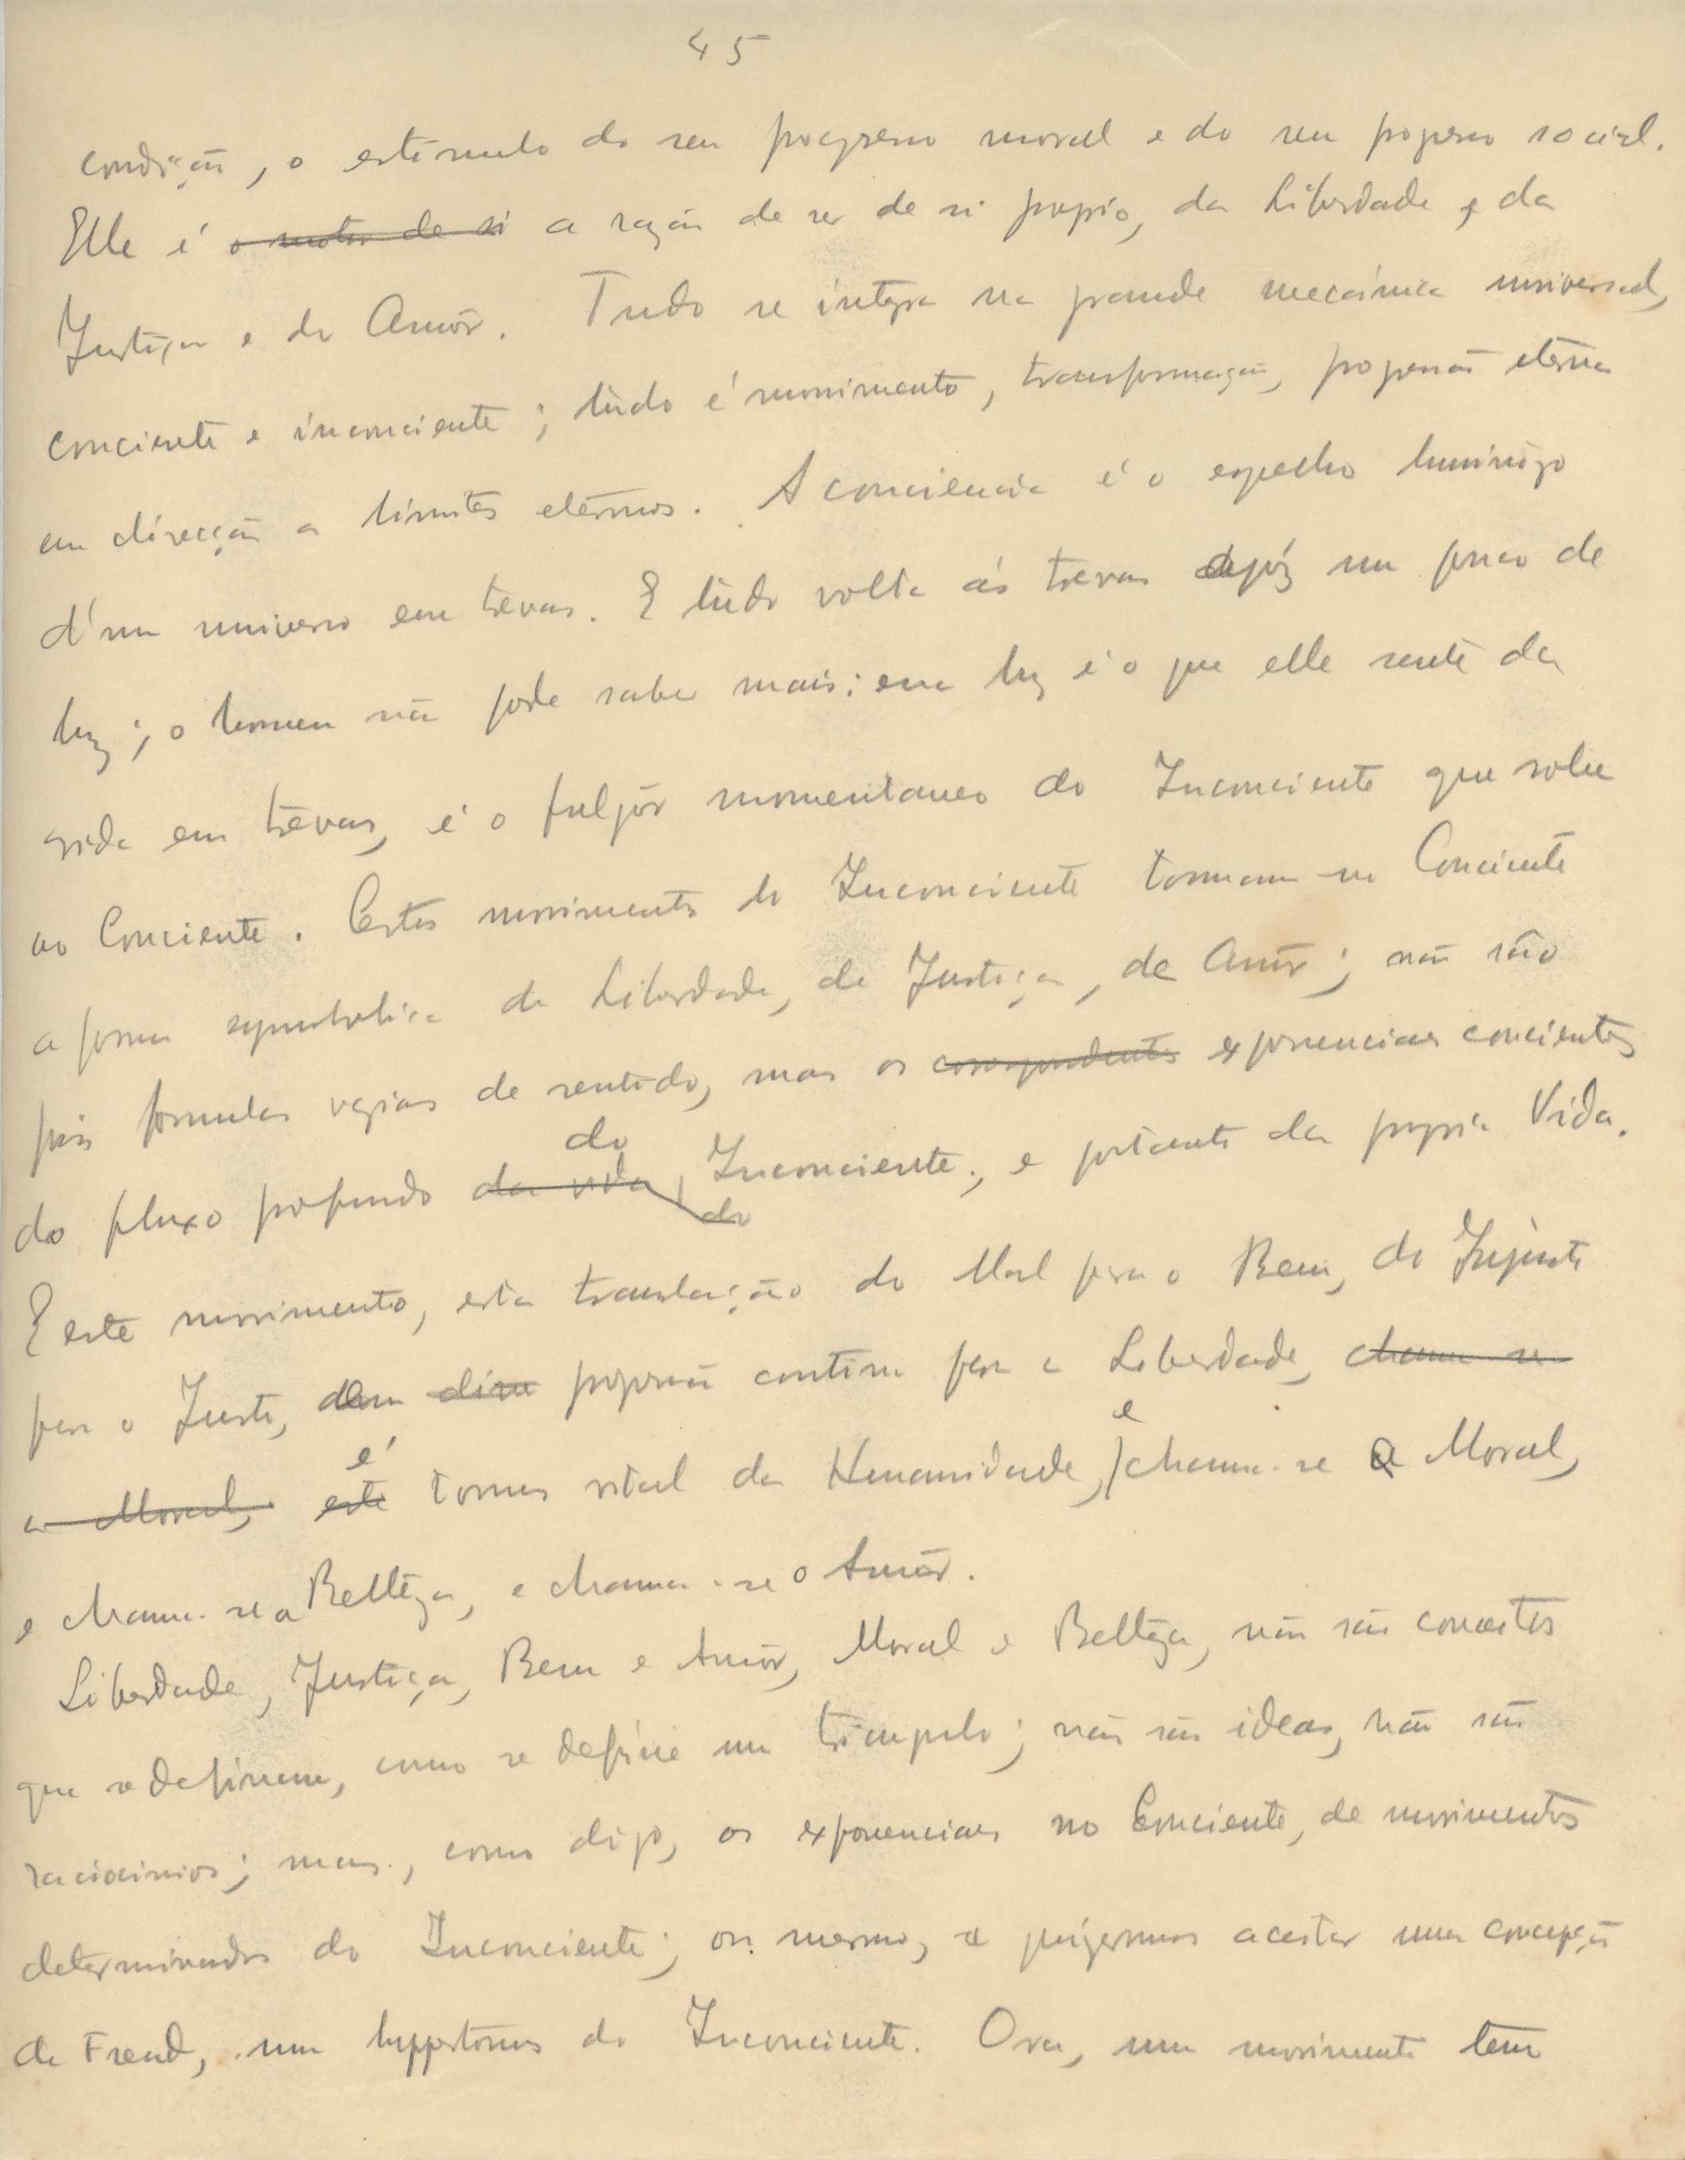 45
condição, o estimulo do seu progresso moral e do seu progresso social.
Elle é o motor de si a razão de ser de si proprio, da Liberdade e da
Justiça e do Amôr. Tudo se integra na grande mecánica universal,
conciente e inconciente; tùdo é movimento, transformação, progressão eterna
em direcção a limites etérnos. A conciencia é o espelho luminôso
d'um universo em trevas. E tùdo volta ás trevas após um pouco de
luz; o homem não pode saber mais; essa luz é o que elle sente da
vida em trévas, é o fulgôr momentaneo do Inconciente que sobe
ao Conciente. Certos movimentos do Inconciente tomam no Conciente
a forma symbolica de Liberdade, de Justiça, de Amôr; não são
pois formulas vazias de sentido, mas os correspondentes exponenciaes concientes
do fluxo profundo da vida do do Inconciente; e portanto da propria Vida.
E este movimento, esta translação do Mal para o Bem, do Injusto
para o Justo, progressão contínua para a Liberdade, chama-se
a Moral, este é tonus vital da Humanidade, e chama-se a Moral,
e chama-se a Bellêza, e chama-se o Amôr.
Liberdade, Justiça, Bem e Amôr, Moral e Bellêza, não são conceitos
que se definem, como se define um triangulo; não são ideas, não são
raciocinios; mas, como digo, os exponenciaes no Conciente, de movimentos
determinados do Inconciente; ou mesmo, se quizermos aceitar uma concepção
de Freud, um hypertonus do Inconciente. Ora, um movimento tem